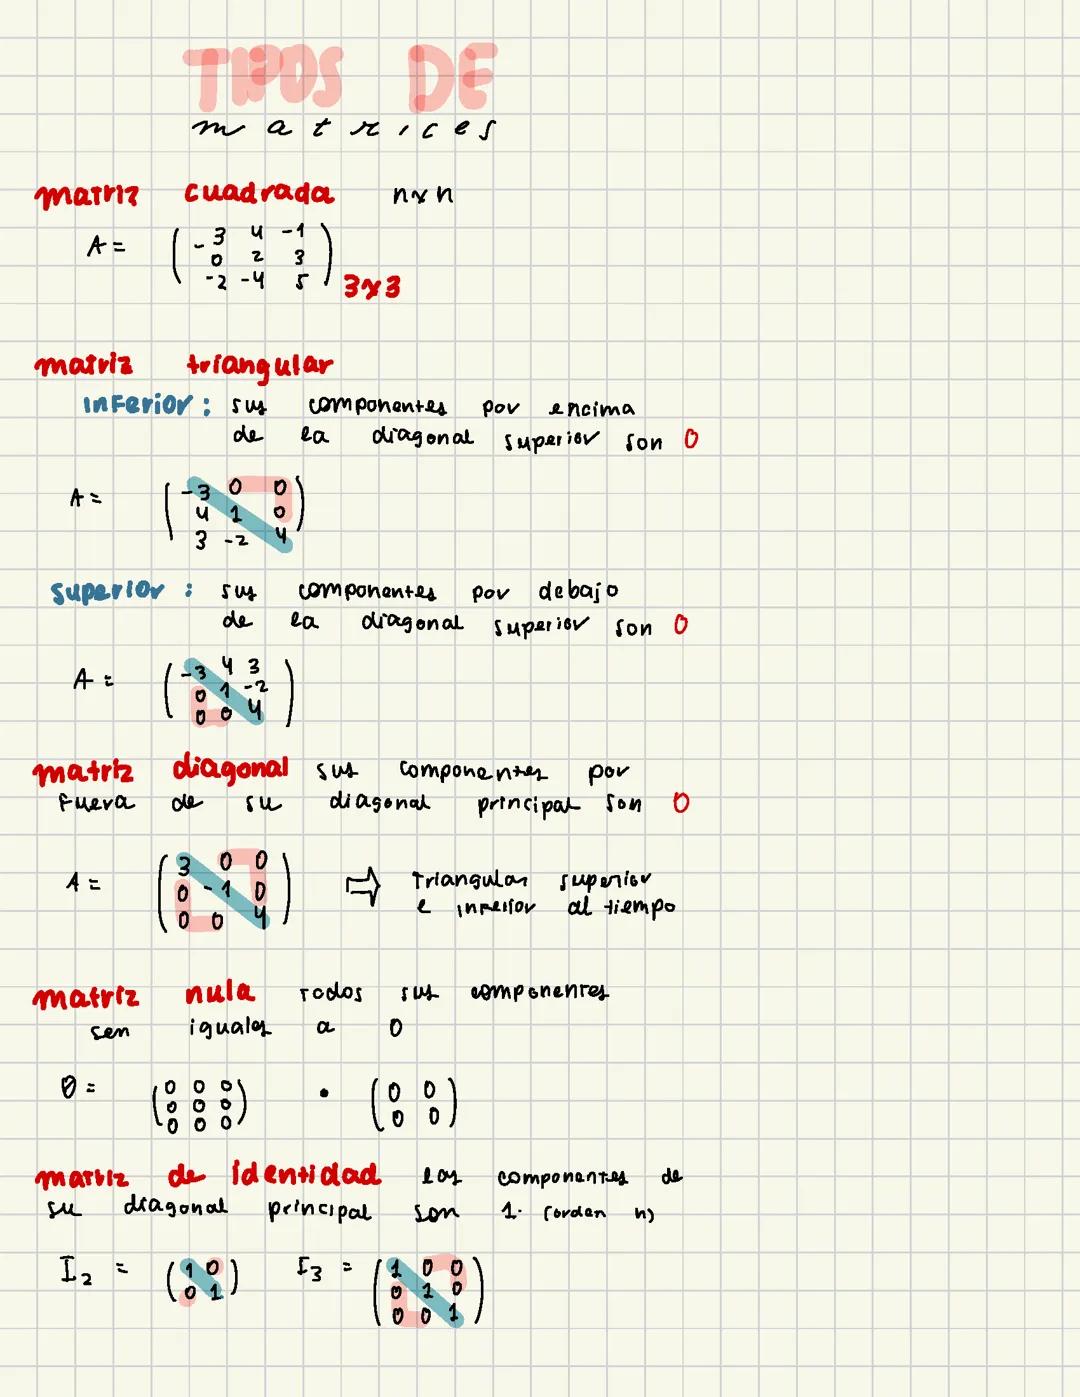 TIPOS DE
matrices
matriz cuadrada nxn
A = ( -3 4 -1
0 2 3
-2 -4 5 ) 3x3
matriz triangular
inferior: sus componentes por encima
de la diagonal superior son 0
A = ( -3 0 0
4 1 0
3 -2 4 )
superior: sus componentes por debajo
de la diagonal superior son 0
A = ( -3 4 3
0 1 -2
0 0 4 )
matriz diagonal sus componentes por
fuera de su diagonal principal son 0
A = ( 3 0 0
0 -1 0
0 0 4 ) ⇒ Triangular superior
e inferior al tiempo
matriz nula Todos sus componentes
sen iguales a 0
0 = ( 0 0 0
0 0 0
0 0 0 ) • ( 0 0
0 0 )
matriz de identidad los componentes de
su diagonal principal son 1. (orden n)
I₂ = ( 1 0
0 1 ) I₃ = ( 1 0 0
0 1 0
0 0 1 )